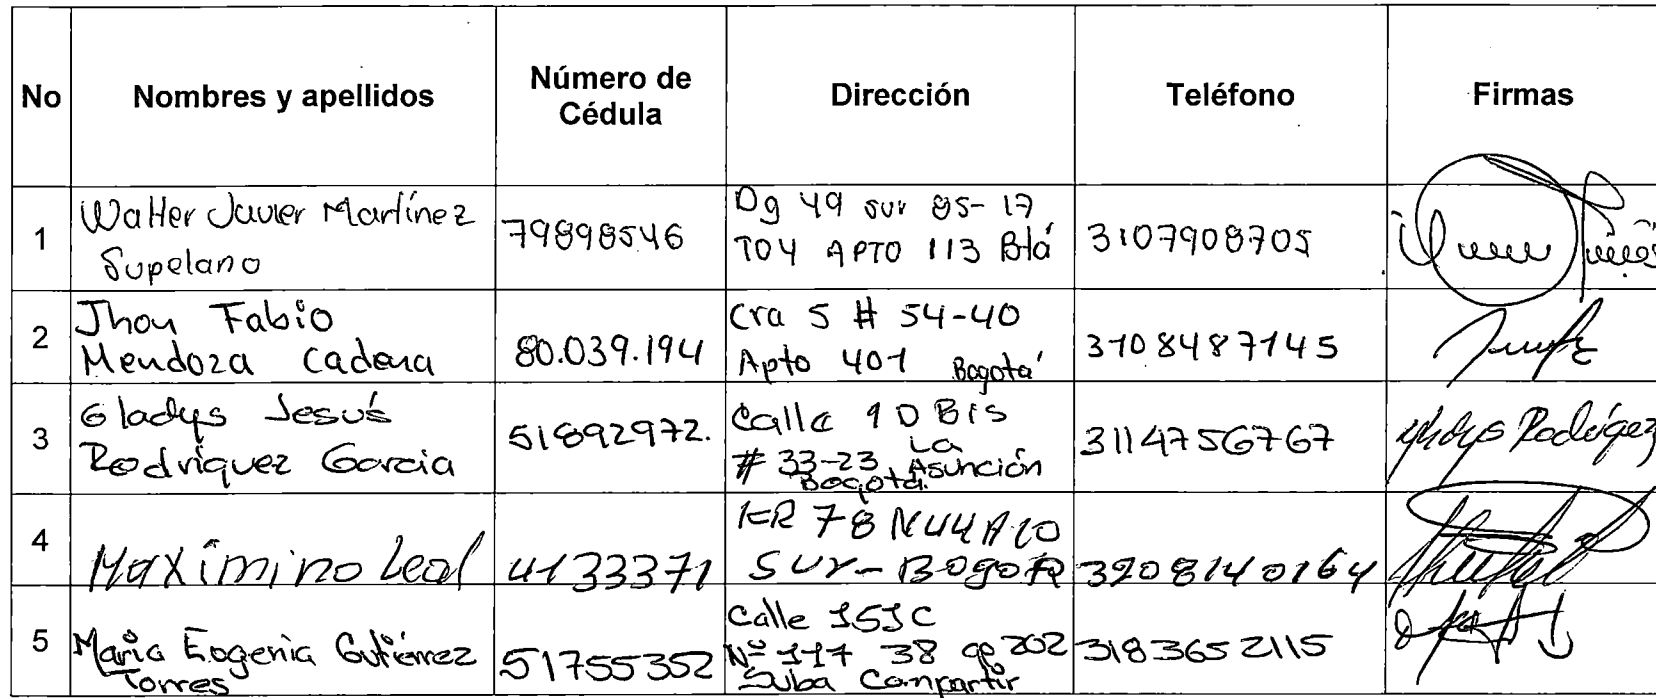 No Nombres y apellidos Número de Cédula Dirección Teléfono Firmas
1
Walter Javier Martínez
Supelano
79898546
Dg 49 sur 85-17
T04 APTO 113 Btá
3107908705
2
Jhon Fabio
Mendoza Cadena
80.039.194
Cra 5 # 54-40
Apto 401 Bogotá
3108487145
3
Gladys Jesús
Rodríquez Garcia
51892972.
Calle 1 D Bis
# 33-23 La Asunción
Bogotá.
3114756767
Gladys Rodrígez
4
Maximino Leal
4133371
KR 78 N44A10
SUR-Bogota
3
5
Maria Eogenia Gutiérrez
Torres
51755352
Calle 151C
Nº 117 38 ap 202
Suba Compartir
3183652115